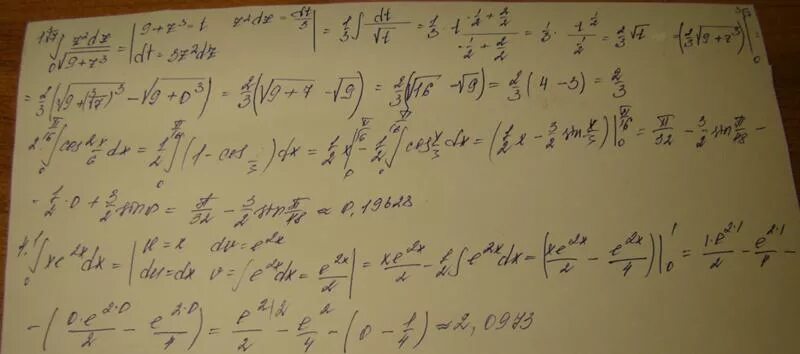 1) ∫₀^∛7 z²dz/√(9+z³) = | 9+z³=t z²dz=dt/3 dt=3z²dz | = 1/3 ∫ dt/√t = 1/3 · t^(-1/2+2/2)/(-1/2+2/2) = 1/3 · t^(1/2)/(1/2) = 2/3 √t = (2/3 √(9+z³))|₀^∛7 =
= 2/3 (√(9+(∛7)³) - √(9+0³)) = 2/3 (√(9+7) - √9) = 2/3 (√16 - √9) = 2/3 (4-3) = 2/3
2) ∫₀^(π/16) cos² x/6 dx = 1/2 ∫₀^(π/16) (1-cos x/3) dx = 1/2 x|₀^(π/16) - 1/2 ∫₀^(π/16) cos x/3 dx = (1/2 x - 3/2 sin x/3)|₀^(π/16) = π/32 - 3/2 sin π/48 -
- 1/2 · 0 + 3/2 sin0 = π/32 - 3/2 sin π/48 ≈ 0,19628
4. ∫₀¹ xe^(2x) dx = | u=x dv=e^(2x) du=dx v=∫e^(2x)dx = e^(2x)/2 | = xe^(2x)/2 - 1/2 ∫e^(2x)dx = (xe^(2x)/2 - e^(2x)/4)|₀¹ = 1·e^(2·1)/2 - e^(2·1)/4 -
- (0·e^(2·0)/2 - e^(2·0)/4) = e²/2 - e²/4 - (0 - 1/4) ≈ 2,0973